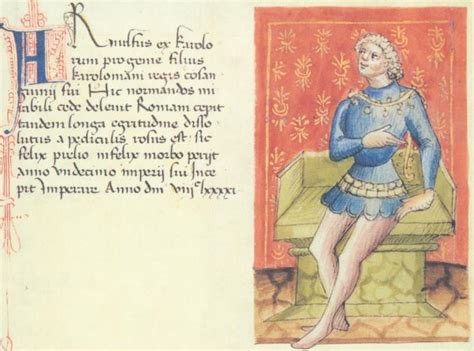 ARnulfus ex karolo
rum progenie filius
karolomani regis cosan
guinij sui hic normandos mi
rabili cede deleuit Romam cepit
tandem longa egritudine disso
lutus a pediculis rosus est sic
felix prelio infelix morbo perijt
Anno vndecimo imperij sui ince
pit Imperare Anno dni viijc lxxxxi.